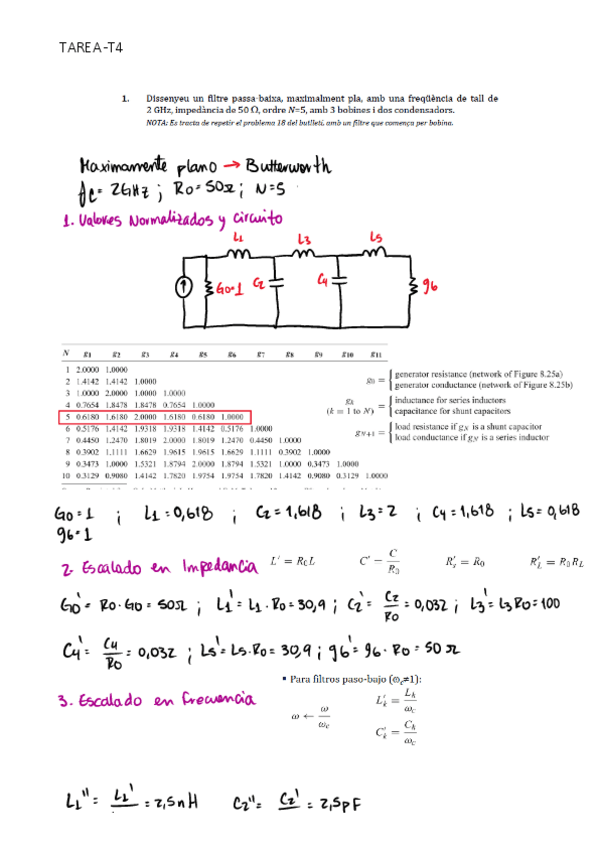 TAREA-T4
1. Dissenyeu un filtre passa-baixa, maximalment pla, amb una freqüència de tall de
2 GHz, impedància de 50 Ω, ordre N=5, amb 3 bobines i dos condensadors.
NOTA: Es tracta de repetir el problema 18 del butlletí, amb un filtre que comença per bobina.
Maximamente plano → Butterworth
fc = 2GHz ; Ro = 50Ω ; N=5
1. Valores Normalizados y Circuito
L1 L3 L5
Go=1 C2 C4 g6
N g1 g2 g3 g4 g5 g6 g7 g8 g9 g10 g11
1 2.0000 1.0000
2 1.4142 1.4142 1.0000
3 1.0000 2.0000 1.0000 1.0000
4 0.7654 1.8478 1.8478 0.7654 1.0000
5 0.6180 1.6180 2.0000 1.6180 0.6180 1.0000
6 0.5176 1.4142 1.9318 1.9318 1.4142 0.5176 1.0000
7 0.4450 1.2470 1.8019 2.0000 1.8019 1.2470 0.4450 1.0000
8 0.3902 1.1111 1.6629 1.9615 1.9615 1.6629 1.1111 0.3902 1.0000
9 0.3473 1.0000 1.5321 1.8794 2.0000 1.8794 1.5321 1.0000 0.3473 1.0000
10 0.3129 0.9080 1.4142 1.7820 1.9754 1.9754 1.7820 1.4142 0.9080 0.3129 1.0000
g0 = { generator resistance (network of Figure 8.25a)
generator conductance (network of Figure 8.25b)
gk (k = 1 to N) = { inductance for series inductors
capacitance for shunt capacitors
gN+1 = { load resistance if gN is a shunt capacitor
load conductance if gN is a series inductor
Go=1 ; L1=0,618 ; C2=1,618 ; L3=2 ; C4=1,618 ; L5=0,618
g6=1
2. Escalado en Impedancia L' = R0L C' = C/R0 R's = R0 R'L = R0RL
Go' = Ro·Go = 50Ω ; L1' = L1·Ro = 30,9 ; C2' = C2/Ro = 0,032 ; L3' = L3Ro = 100
C4' = C4/Ro = 0,032 ; L5' = L5·Ro = 30,9 ; g6' = g6·Ro = 50Ω
▪ Para filtros paso-bajo (ωc≠1):
3. Escalado en Frecuencia ω ← ω/ωc L'k = Lk/ωc
C'k = Ck/ωc
L1'' = L1' = 2,5nH C2'' = C2' = 2,5pF